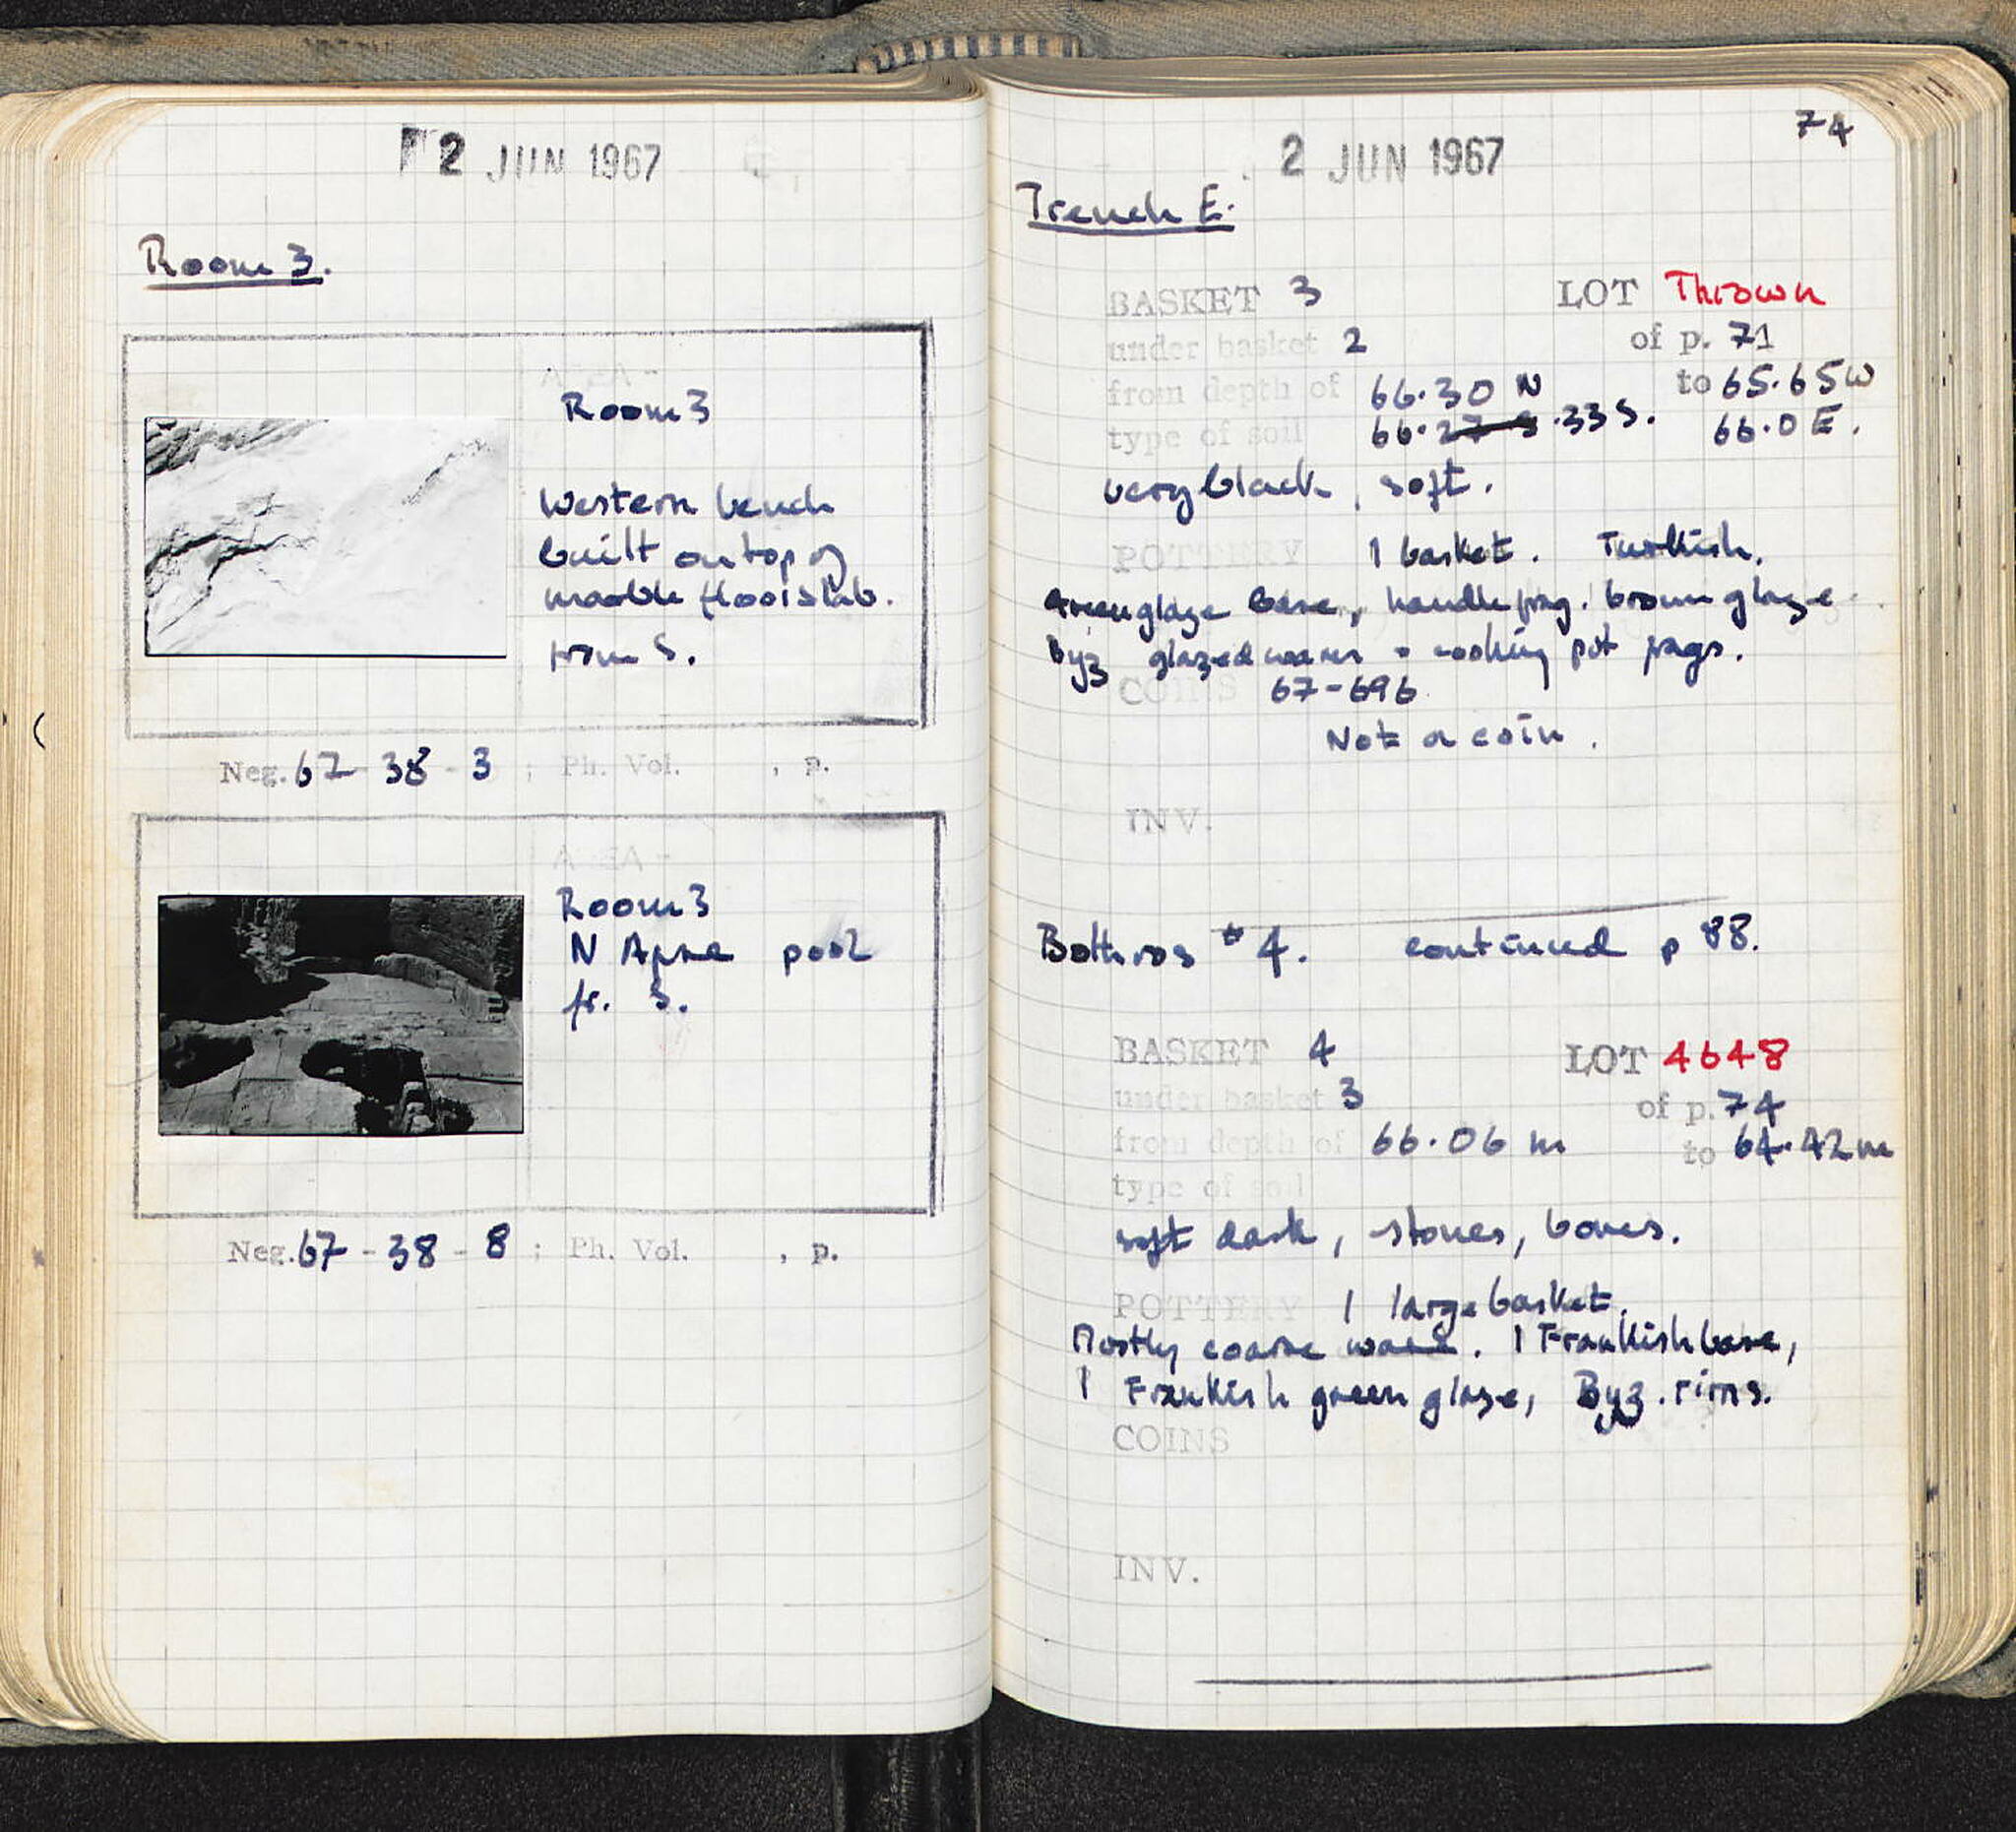 2 JUN 1967
Room 3.
AREA -
Room 3
Western bench
built on top of
marble floor slab.
from S.
Neg. 67 - 38 - 3 ; Ph. Vol. , p.
AREA -
Room 3
N Apse pool
fr. S.
Neg. 67 - 38 - 8 ; Ph. Vol. , p.
74
2 JUN 1967
Trench E.
BASKET 3 LOT Thrown
under basket 2 of p. 71
from depth of 66.30 N to 65.65 W
type of soil 66. .33 S. 66.0 E.
very black, soft.
POTTERY 1 basket. Turkish.
Green glaze base, handle frag. brown glaze
Byz glazed wares + cooking pot frags.
COINS 67-696
Not a coin.
INV.
Bothros #4. continued p 88.
BASKET 4 LOT 4648
under basket 3 of p. 74
from depth of 66.06 m to 64.42 m
type of soil
soft dark, stones, bones.
POTTERY 1 large basket.
Mostly coarse ware. 1 Frankish base,
1 Frankish green glaze, Byz. rims.
COINS
INV.